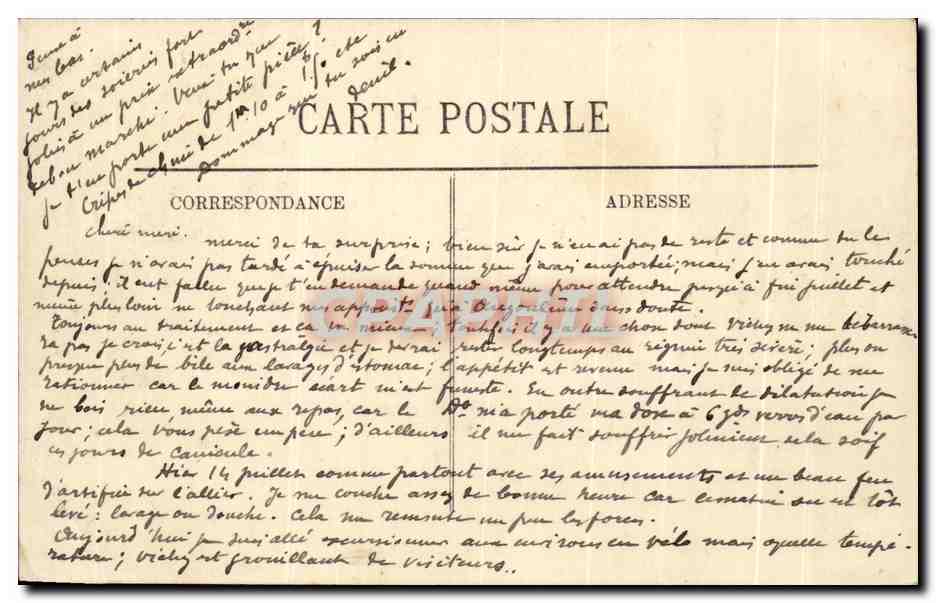 mes bas.
Il y a certains
jours des soieries fort
jolies à un prix extraordre
bon marché. Veux tu que
je t'en porte une petite pièce ?
Crêpes de chine de 1f10 à 1f50 etc
Dommage que tu sois en
deuil.
CARTE POSTALE
CORRESPONDANCE
ADRESSE
Chère mère. merci de ta surprise ; bien sûr je n'en ai pas de reste et comme tu le
penses je n'avais pas tardé à épuiser la somme que j'avais emportée ; mais j'en avais touché
depuis ; il eut fallu que je t'en demande quand même pour attendre jusqu'à fin juillet et
même plus loin ne touchant mes appoints qu'à Angoulême sans doute.
Toujours au traitement et ça va mieux ; toutefois il y a une chose dont Vichy ne me débarrasse
ra pas je crois, c'est la gastralgie et je devrai rester longtemps au régime très sévère ; plus ou
presque plus de bile aux lavages d'estomac ; l'appétit est revenu mais je suis obligé de me
rationner car le moindre écart m'est funeste. En outre souffrant de dilatation je
ne bois rien même aux repas, car le Dr m'a porté ma dose à 6 gds verres d'eau par
jour ; cela vous pèse un peu ; d'ailleurs il me fait souffrir joliment de la soif
ces jours de canicule.
Hier 14 juillet comme partout avec ses amusements et un beau feu
d'artifice sur l'allier. Je me couche assez de bonne heure car le matin on est tôt
levé : lavage ou douche. Cela me remonte un peu les forces.
Aujourd'hui je suis allé excursionner aux environs en vélo mais quelle tempé-
rature ; Vichy est grouillant de visiteurs..